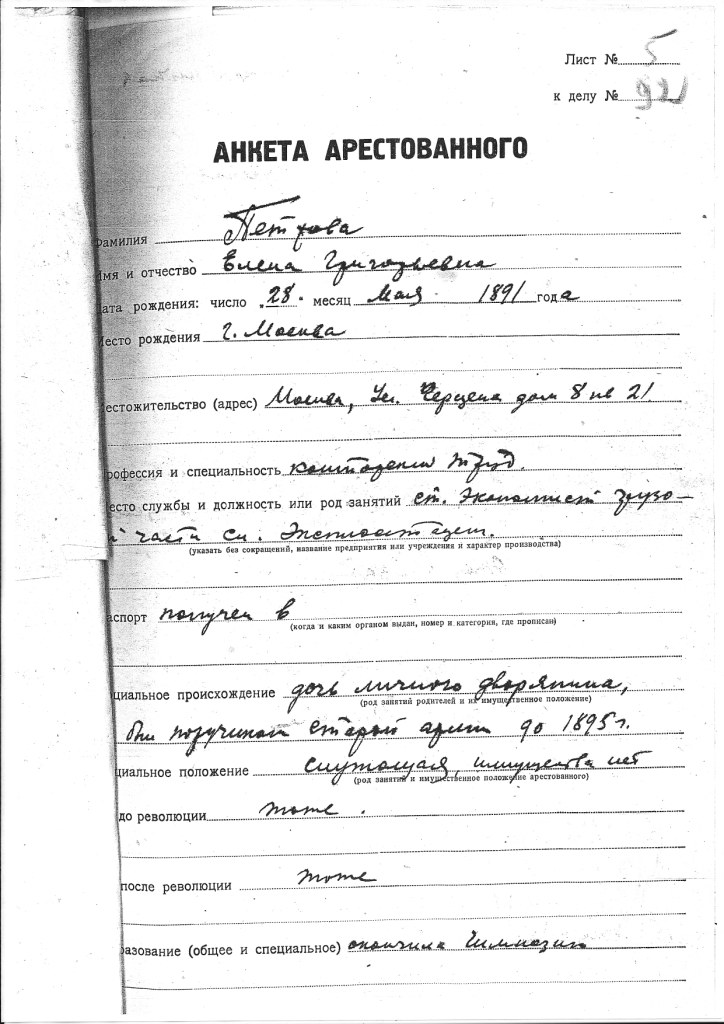 Лист № 5
к делу № 921
АНКЕТА АРЕСТОВАННОГО
Фамилия Петрова
Имя и отчество Елена Григорьевна
Дата рождения: число 28 месяц Мая 1891 года
Место рождения г. Москва
естожительство (адрес) Москва, Ул. Герцена дом 8 кв 21
рофессия и специальность конторский труд.
есто службы и должность или род занятий ст. Экономист грузо-
й части сл. Эксплоатац.
(указать без сокращений, название предприятия или учреждения и характер производства)
аспорт получен в
(когда и каким органом выдан, номер и категория, где прописан)
циальное происхождение дочь личного дворянина,
(род занятий родителей и их имущественное положение)
был поручиком старой армии до 1895 г.
циальное положение служащая, имущества нет
(род занятий и имущественное положение арестованного)
до революции тоже.
после революции тоже
разование (общее и специальное) окончила гимназию